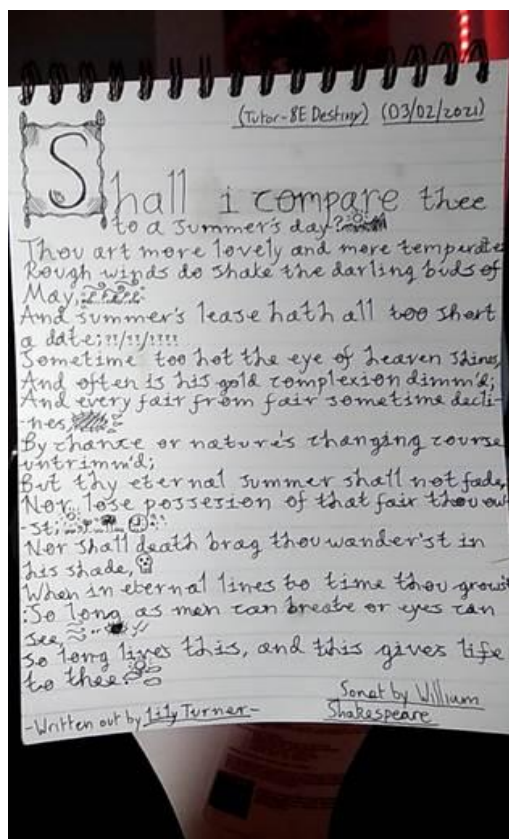 (Tutor-8E Destiny) (03/02/2021)
Shall i compare thee
to a summer's day?
Thou art more lovely and more temperate
Rough winds do shake the darling buds of
May,
And summer's lease hath all too short
a date;??/??/????
Sometime too hot the eye of heaven shines,
And often is his gold complexion dimm'd;
And every fair from fair sometime decli-
-nes,
By chance or nature's changing course
untrimm'd;
But thy eternal summer shall not fade,
Nor lose possesion of that fair thou ow-
-st;
Nor shall death brag thou wander'st in
his shade,
When in eternal lines to time thou growst
:So long as men can breate or eyes can
see,
So long lives this, and this gives life
to thee.
Sonet by William
-Written out by Lily Turner- Shakespeare